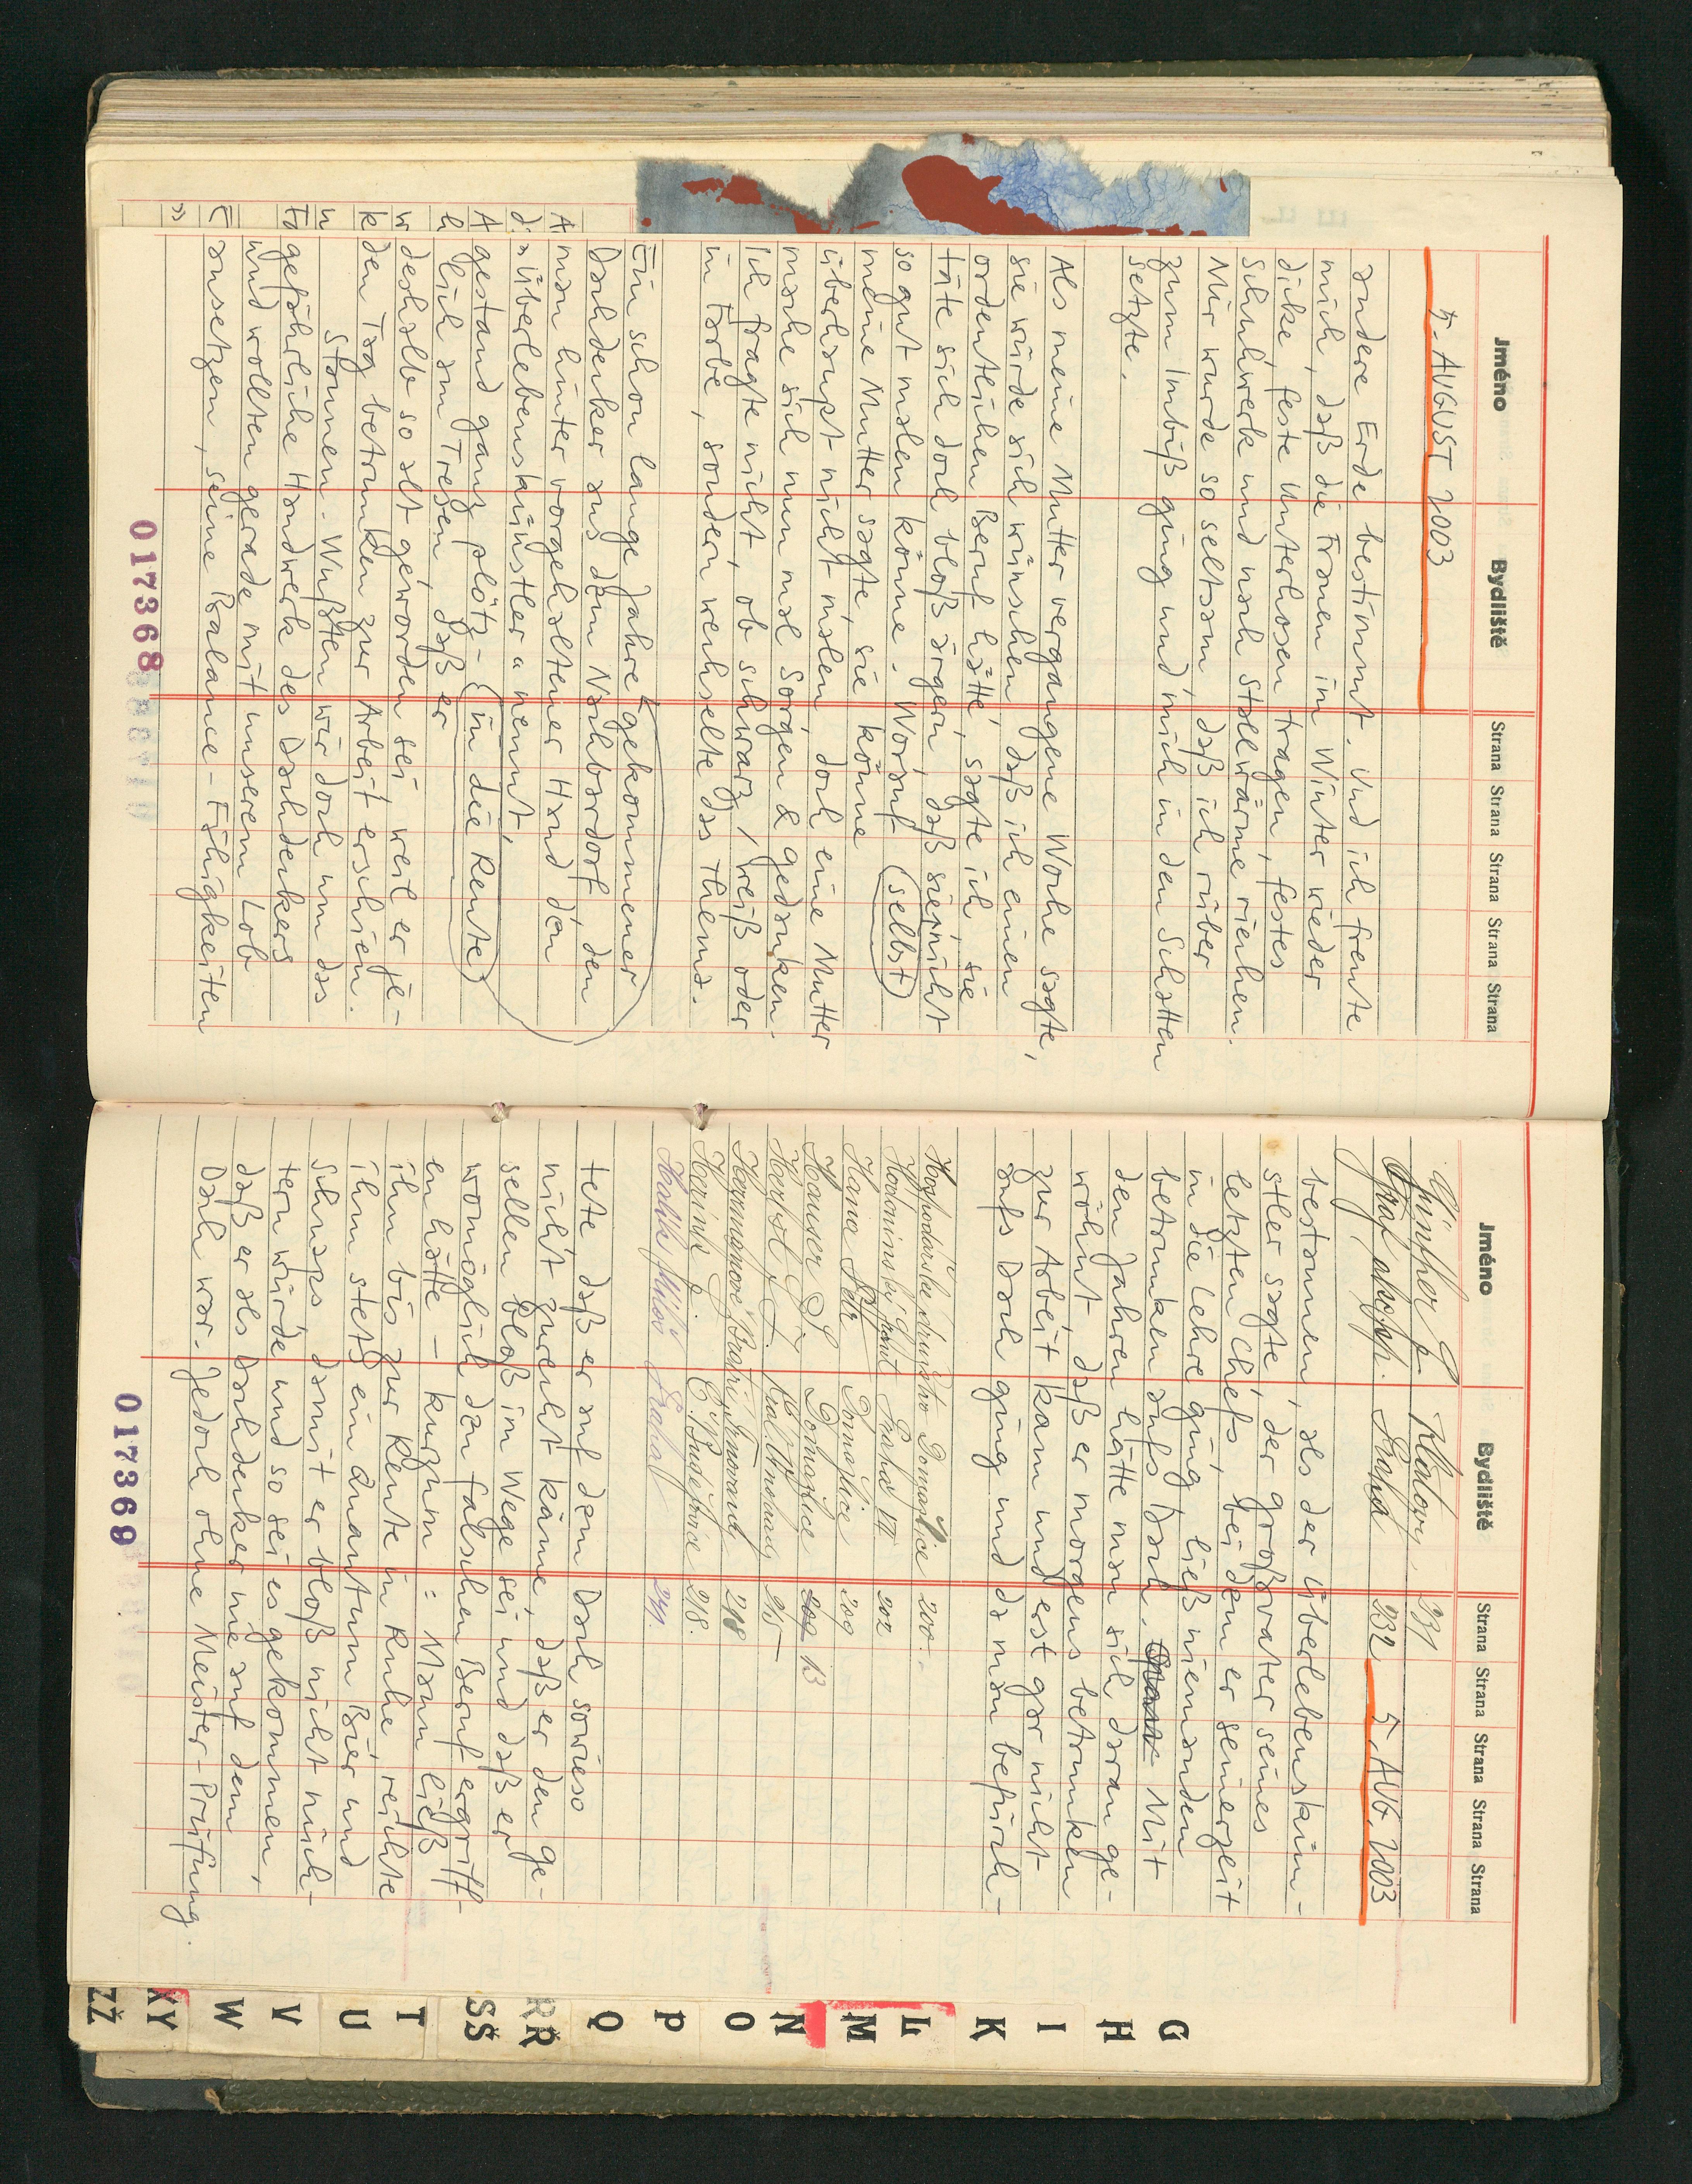 Jméno Bydliště Strana Strana Strana Strana Strana
5. AUGUST 2003
andere Erde bestimmt. Und ich freute
mich, daß die Frauen im Winter wieder
dicke, feste Unterhosen tragen, festes
Schuhwerk und nach Stallwärme riechen.
Mir wurde so seltsam, daß ich rüber
zum Imbiß ging und mich in den Schatten
setzte.
Als meine Mutter vergangene Woche sagte,
sie würde sich wünschen, daß ich einen
ordentlichen Beruf hätte, sagte ich, sie
täte sich doch bloß ärgern, daß sie nicht
so gut malen könne. Worauf (selbst)
meine Mutter sagte, sie könne
überhaupt nicht malen, doch eine Mutter
mache sich nun mal Sorgen & Gedanken.
Ich fragte nicht, ob schwarz/weiß oder
in Farbe, sondern wechselte das Thema.
Ein schon lange Jahre gekommener
Dachdenker aus dem Nachbardorf, den
man hinter vorgehaltener Hand den
Überlebenskünstler nennt,
gestand ganz plötz- (in die Rente)
lich am Tresen, daß er
deshalb so alt geworden sei, weil er je-
den Tag betrunken zur Arbeit erschien.
Staunen. Wußten wir doch um das
gefährliche Handwerk des Dachdenkers
und wollten gerade mit unserem Lob
ansetzen, seine Balance-Fähigkeiten
017368
Jméno Bydliště Strana Strana Strana Strana Strana
Kladov 231
Praha 232 5. AUG. 2003
bestaunen, als der Überlebenskün-
stler sagte, der Großvater seines
letzten Chefs, bei dem er seinerzeit
in die Lehre ging, ließ niemanden
betrunken aufs Dach. Mit
den Jahren hätte man sich daran ge-
wöhnt, daß er morgens betrunken
zur Arbeit kam und erst gar nicht
aufs Dach ging und da man befürch-
Hospodářské družstvo Domažlice 200.-
Hodoninský Praha VII 202
Hana Petr Domažlice 209
Hauser J. Domažlice 13
215
218
Herink C. Budějovice 218.
Praha 241.
tete, daß er auf dem Dach sowieso
nicht zurecht käme, daß er den Ge-
sellen bloß in Wege sei und daß er
womöglich den falschen Beruf ergriff-
en hätte - kurzum: Man ließ
ihn bis zur Rente in Ruhe, reichte
ihm stets ein Quantum Bier und
Schnaps, damit er bloß nicht nüch-
tern würde und so sei es gekommen,
daß er als Dachdenker nie auf dem
Dach war. Jedoch ohne Meister-Prüfung.
017369
G
H
I
K
L
M
N
O
P
Q
RŘ
SŠ
T
U
V
W
XY
ZŽ